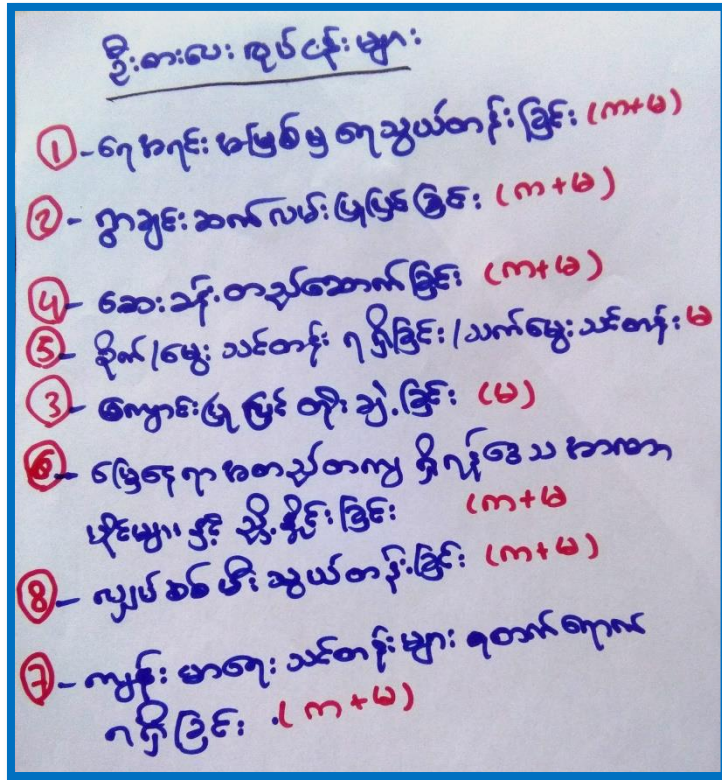 ဦးစားပေး လုပ်ငန်းများ
① - ရေအရင်း အမြစ်မှ ရေသွယ်တန်းခြင်း (က+မ)
② - ရွာချင်း ဆက်လမ်း ပြုပြင်ခြင်း (က+မ)
④ - ဆေးခန်း တည်ဆောက်ခြင်း (က+မ)
⑤ - စိုက်/မွေး သင်တန်း ရရှိခြင်း/သက်မွေး သင်တန်း မ
③ - ကျောင်းပြုပြင် တိုးချဲ့ခြင်း (မ)
⑥ - မြေနေရာအတည်တကျ ရှိရန်ဒေသ အာဏာ
ပိုင်များနှင့် ညှိနှိုင်းခြင်း (က+မ
⑧ - လျှပ်စစ်မီး သွယ်တန်းခြင်း (က+မ)
⑦ - ကျန်းမာရေး သင်တန်းများ ရတက်ရောက်
ရရှိခြင်း . (က+မ)